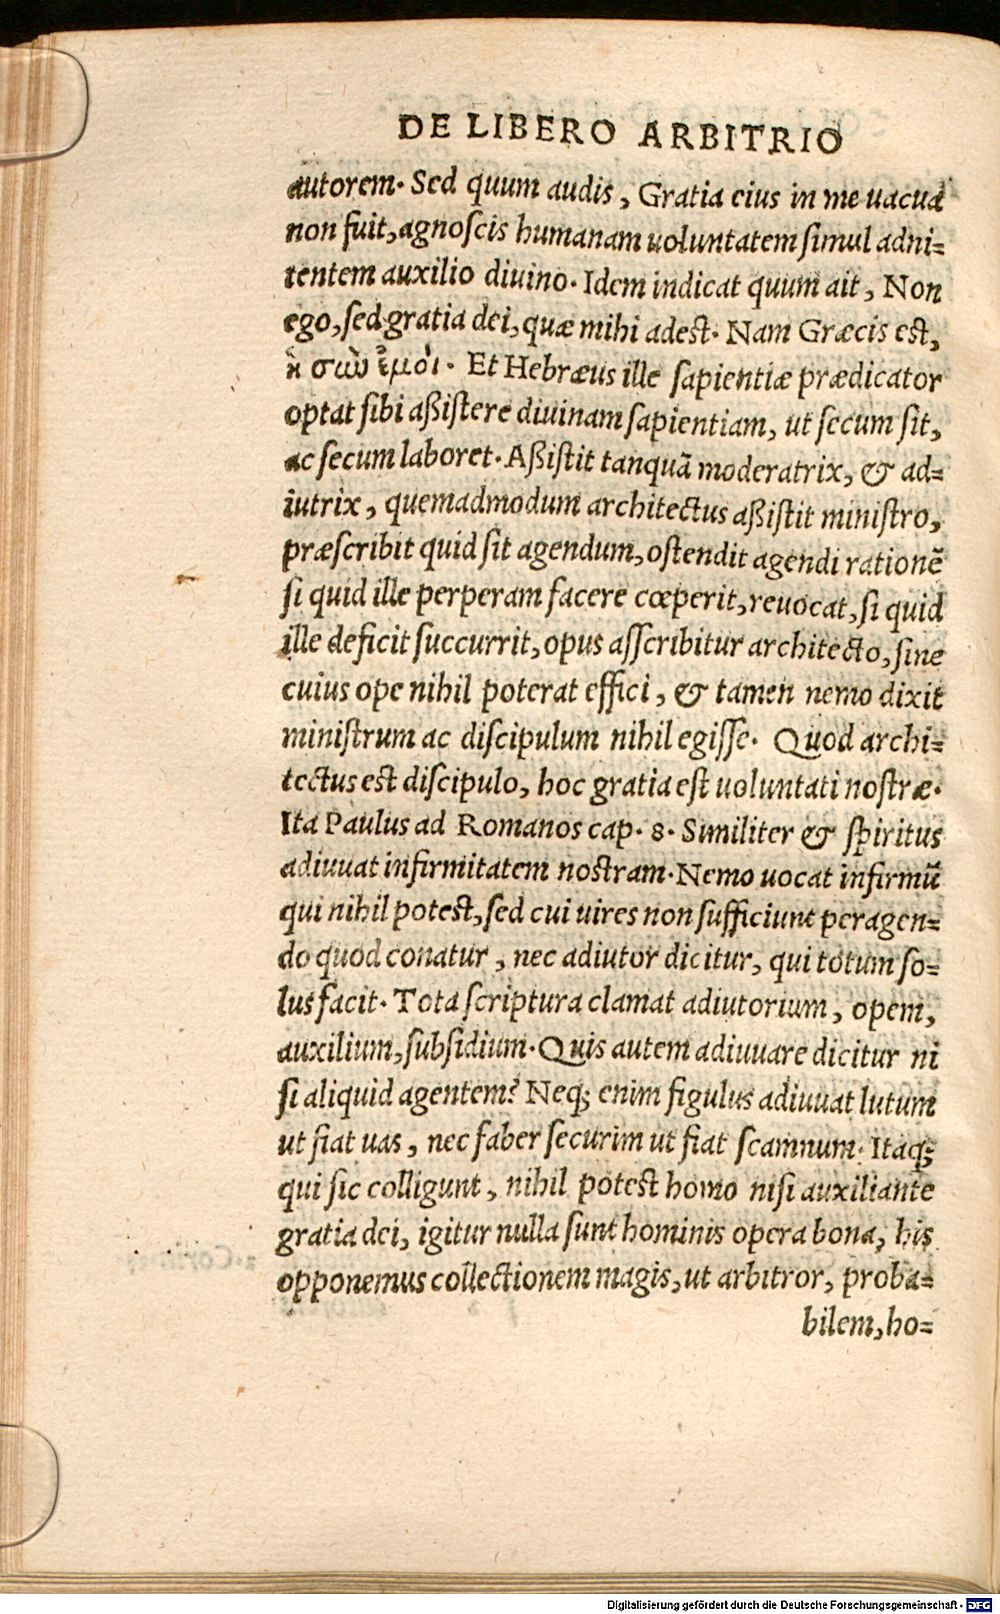 DE LIBERO ARBITRIO
autorem. Sed quum audis, Gratia eius in me uacua
non fuit, agnoscis humanam uoluntatem simul adni=
tentem auxilio diuino. Idem indicat quum ait, Non
ego, sed gratia dei, quæ mihi adest. Nam Græcis est,
ἡ σὺν ἐμοὶ. Et Hebræus ille sapientiæ prædicator
optat sibi aßistere diuinam sapientiam, ut secum sit,
ac secum laboret. Aßistit tanquā moderatrix, & ad=
iutrix, quemadmodum architectus aßistit ministro,
præscribit quid sit agendum, ostendit agendi rationē
si quid ille perperam facere cœperit, reuocat, si quid
ille deficit succurrit, opus asscribitur architecto, sine
cuius ope nihil poterat effici, & tamen nemo dixit
ministrum ac discipulum nihil egisse. Quod archi=
tectus est discipulo, hoc gratia est uoluntati nostræ.
Ita Paulus ad Romanos cap. 8. Similiter & spiritus
adiuuat infirmitatem nostram. Nemo uocat infirmū
qui nihil potest, sed cui uires non sufficiunt peragen=
do quod conatur, nec adiutor dicitur, qui totum so=
lus facit. Tota scriptura clamat adiutorium, opem,
auxilium, subsidium. Quis autem adiuuare dicitur ni
si aliquid agentem? Neq; enim figulus adiuuat lutum
ut fiat uas, nec faber securim ut fiat scamnum. Itaq;
qui sic colligunt, nihil potest homo nisi auxiliante
gratia dei, igitur nulla sunt hominis opera bona, his
opponemus collectionem magis, ut arbitror, proba=
bilem, ho=
Digitalisierung gefördert durch die Deutsche Forschungsgemeinschaft - DFG